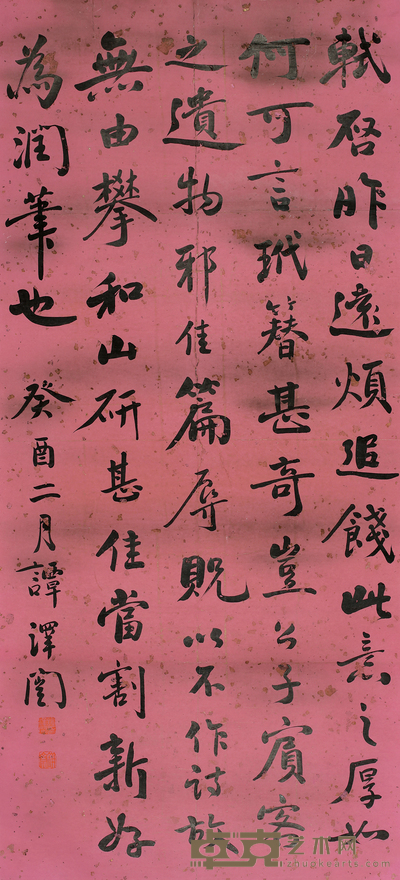 軾啓昨日遠煩追餞此意之厚如
何可言玳簪甚奇豈公子賓客
之遺物邪佳篇辱貺以不作詩故
無由攀和山研甚佳當割新好
為潤筆也 癸酉二月譚澤闓
卓克艺术网
zhuokearts.com